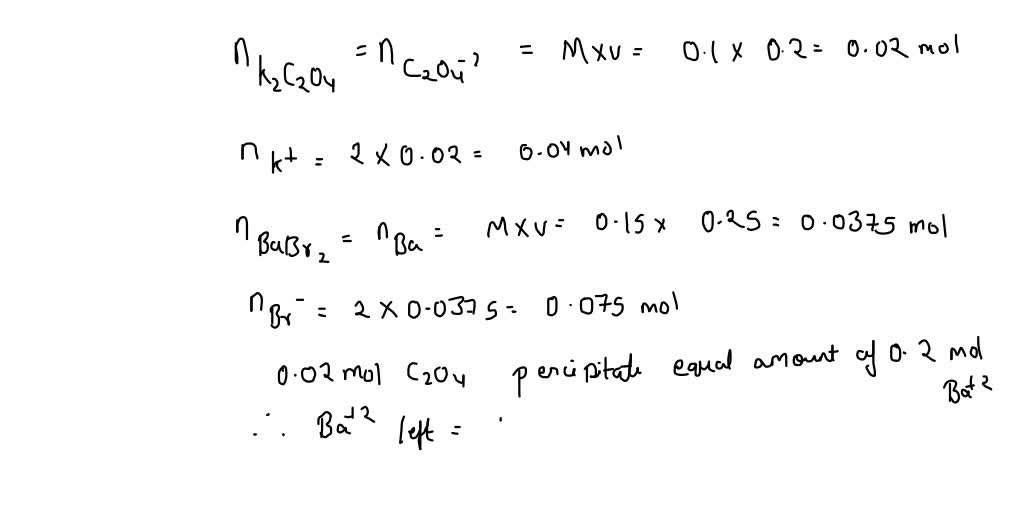 n K₂C₂O₄ = n C₂O₄⁻² = M×V = 0.1 × 0.2 = 0.02 mol
n K+ = 2 × 0.02 = 0.04 mol
n BaBr₂ = n Ba = M×V = 0.15 × 0.25 = 0.0375 mol
n Br⁻ = 2 × 0.0375 = 0.075 mol
0.02 mol C₂O₄ percipitate equal amount of 0.2 mol Ba⁺²
∴ Ba⁺² left =